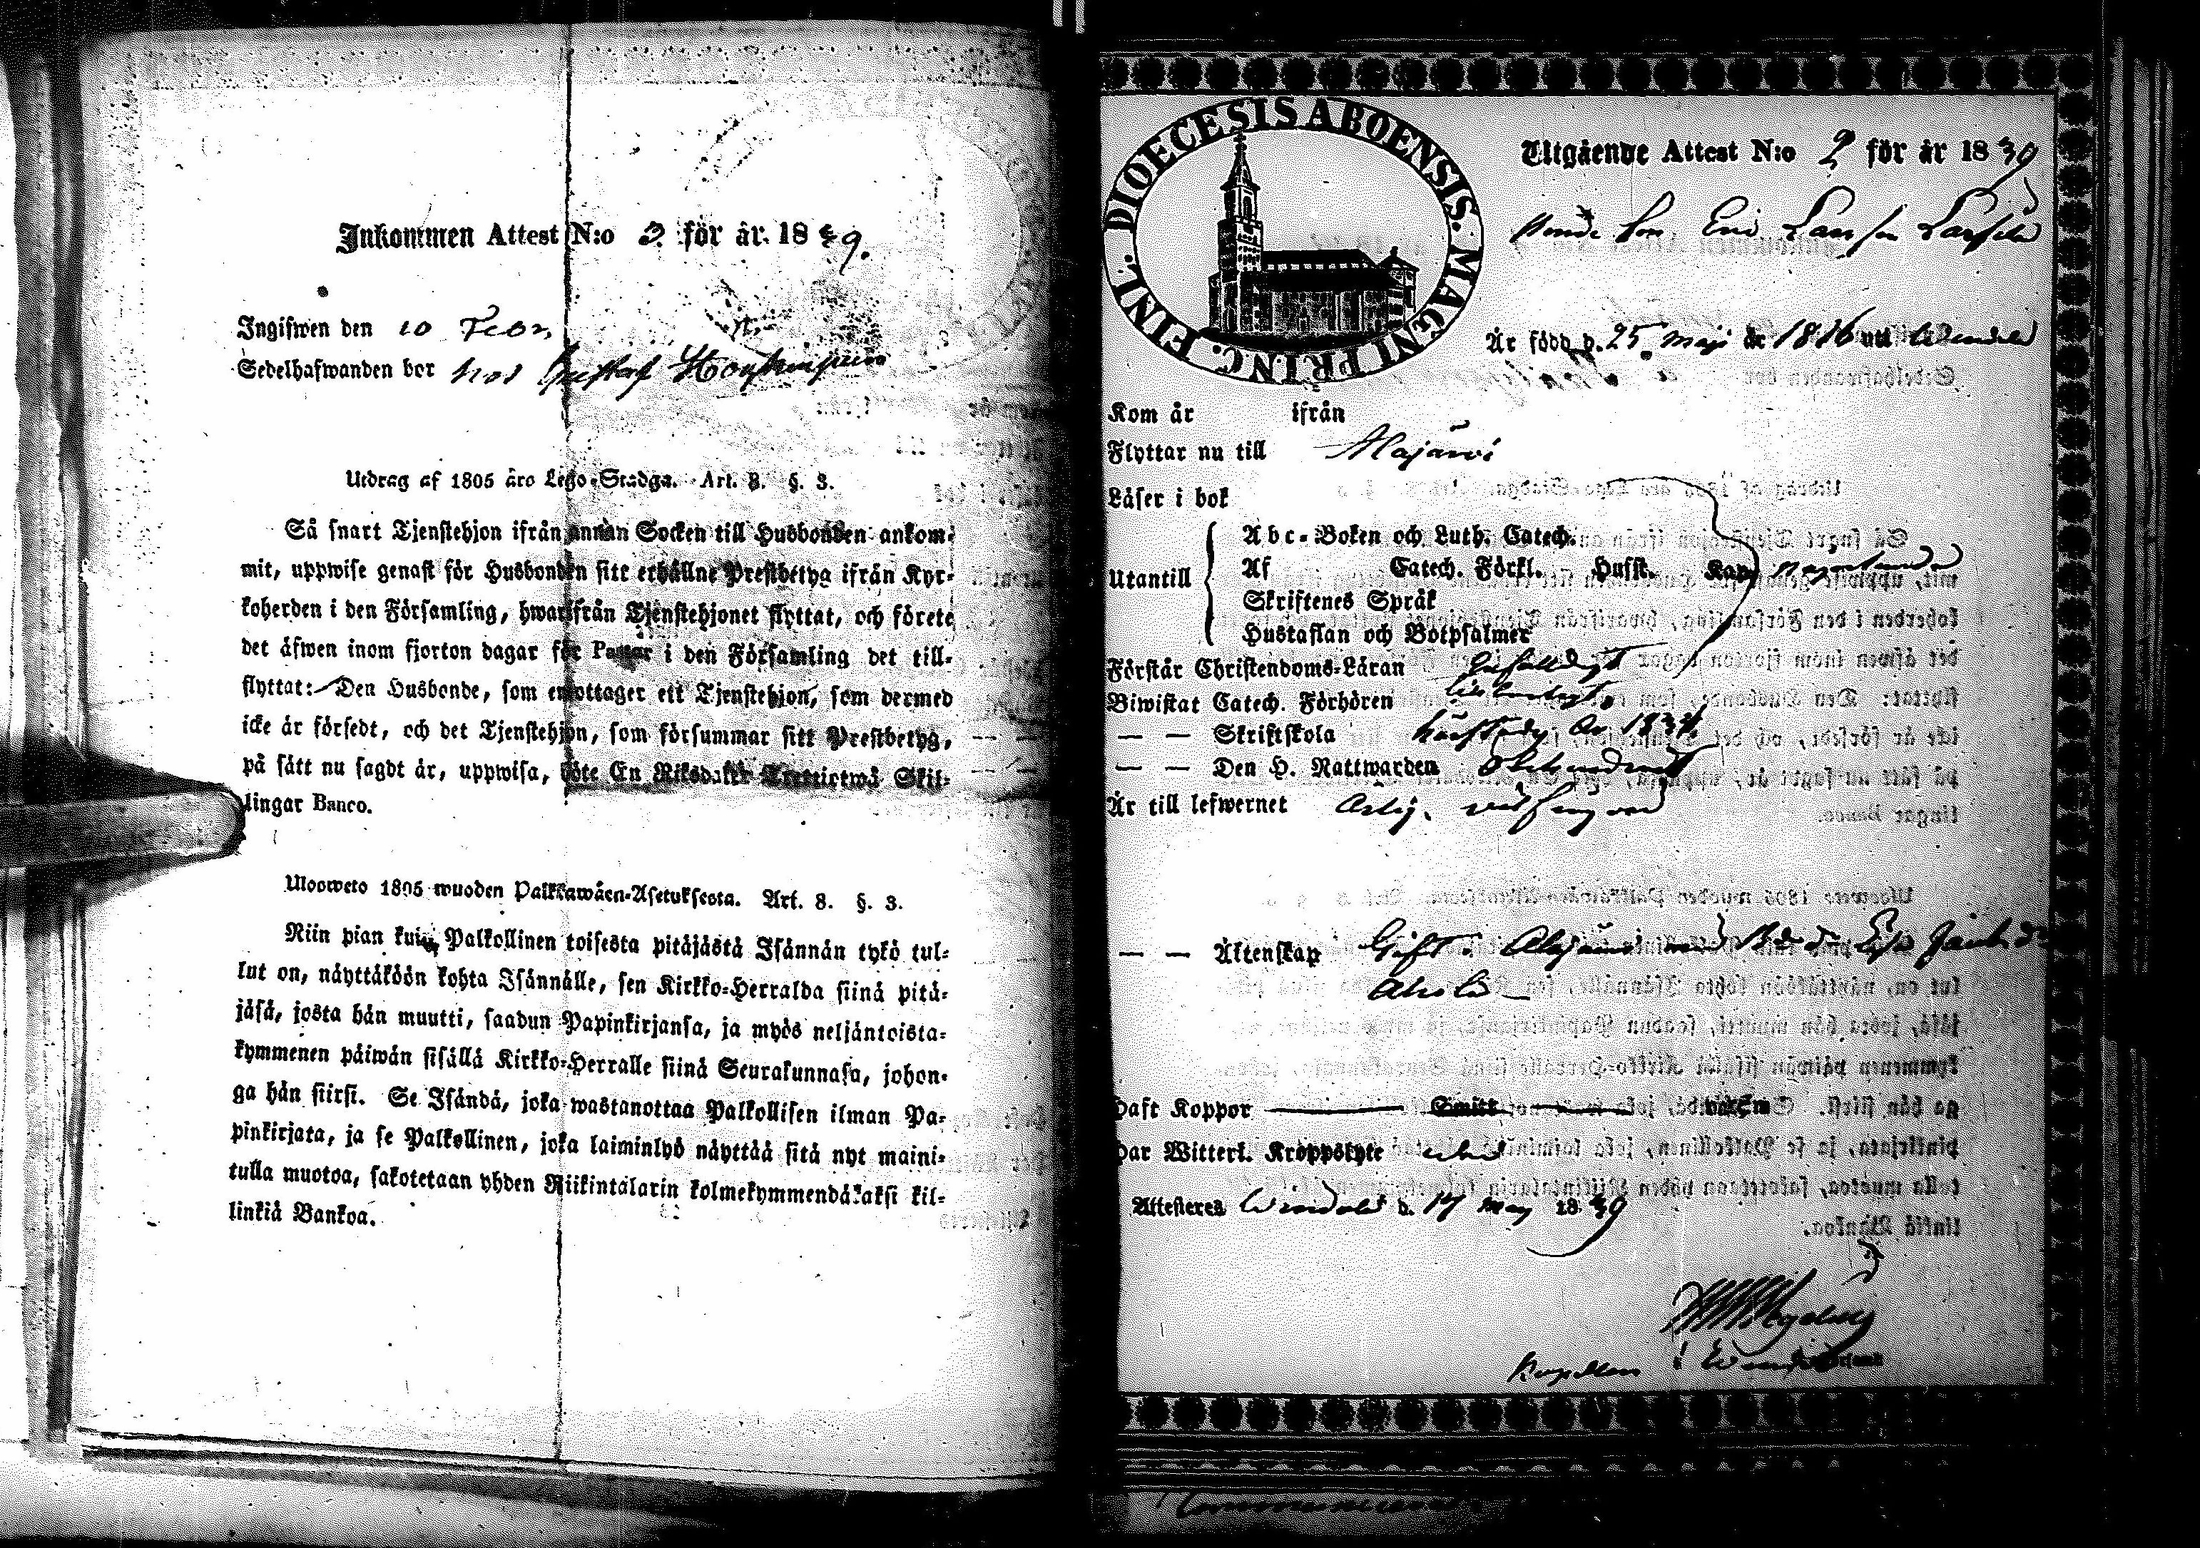 Inkommen Attest N:o 3. för år. 1839.
Ingifwen den 10 Febr.
Sedelhafwanden bor hos Gustaf
Utdrag af 1805 års Lego-Stadga. Art. 8. §. 3.
Så snart Tjenstehjon ifrån annan Socken till Husbonden ankom-
mit, uppwise genast för Husbonden sitt erhållne Prestbetyg ifrån Kyr-
koherden i den Församling, hwarifrån Tjenstehjonet flyttat, och förete
det äfwen inom fjorton dagar för Pastor i den Församling det till-
flyttat: Den Husbonde, som emottager ett Tjenstehjon, som dermed
icke är försedt, och det Tjenstehjon, som försummar sitt Prestbetyg,
på sätt nu sagdt är, uppwisa, böte En Riksdaler Trettiotwå Skil-
lingar Banco.
Ulosweto 1805 wuoden Palkkawäen-Asetuksesta. Art. 8. §. 3.
Niin pian kuin Palkollinen toisesta pitäjästä Isännän tykö tul-
lut on, näyttäköön kohta Isännälle, sen Kirkko-Herralda siinä pitä-
jäsä, josta hän muutti, saadun Papinkirjansa, ja myös neljäntoista-
kymmenen päiwän sisällä Kirkko-Herralle siinä Seurakunnasa, johon-
ga hän siirsi. Se Isändä, joka wastanottaa Palkollisen ilman Pa-
pinkirjata, ja se Palkollinen, joka laiminlyö näyttää sitä nyt maini-
tulla muotoa, sakotetaan yhden Riikintalarin kolmekymmendäkaksi kil-
linkiä Bankoa.
FINL. DIOECESIS ABOENSIS. MAGNI PRINC.
Utgående Attest N:o 2 för år 1839
Bonde Son Eric Larsson
Är född d. 25 Maji år 1816 uti
Kom år ifrån
Flyttar nu till Alajärvi
Läser i bok
Abc-Boken och Luth. Catech.
Utantill Af Catech. Förkl. Husst. Kap
Skriftenes Språk
Hustaflan och Botpsalmer
Förstår Christendoms-Läran
Biwistat Catech. Förhören
— — Skriftskola År 1834
— — Den H. Nattwarden
Är till lefwernet ärlig.
— — Äktenskap Gift i Alajärvi med
Ahola
Haft Koppor Smitt vacc
Har Witterl. Kroppslyte
Attesteres d. 17 May 1839
Kapellan i